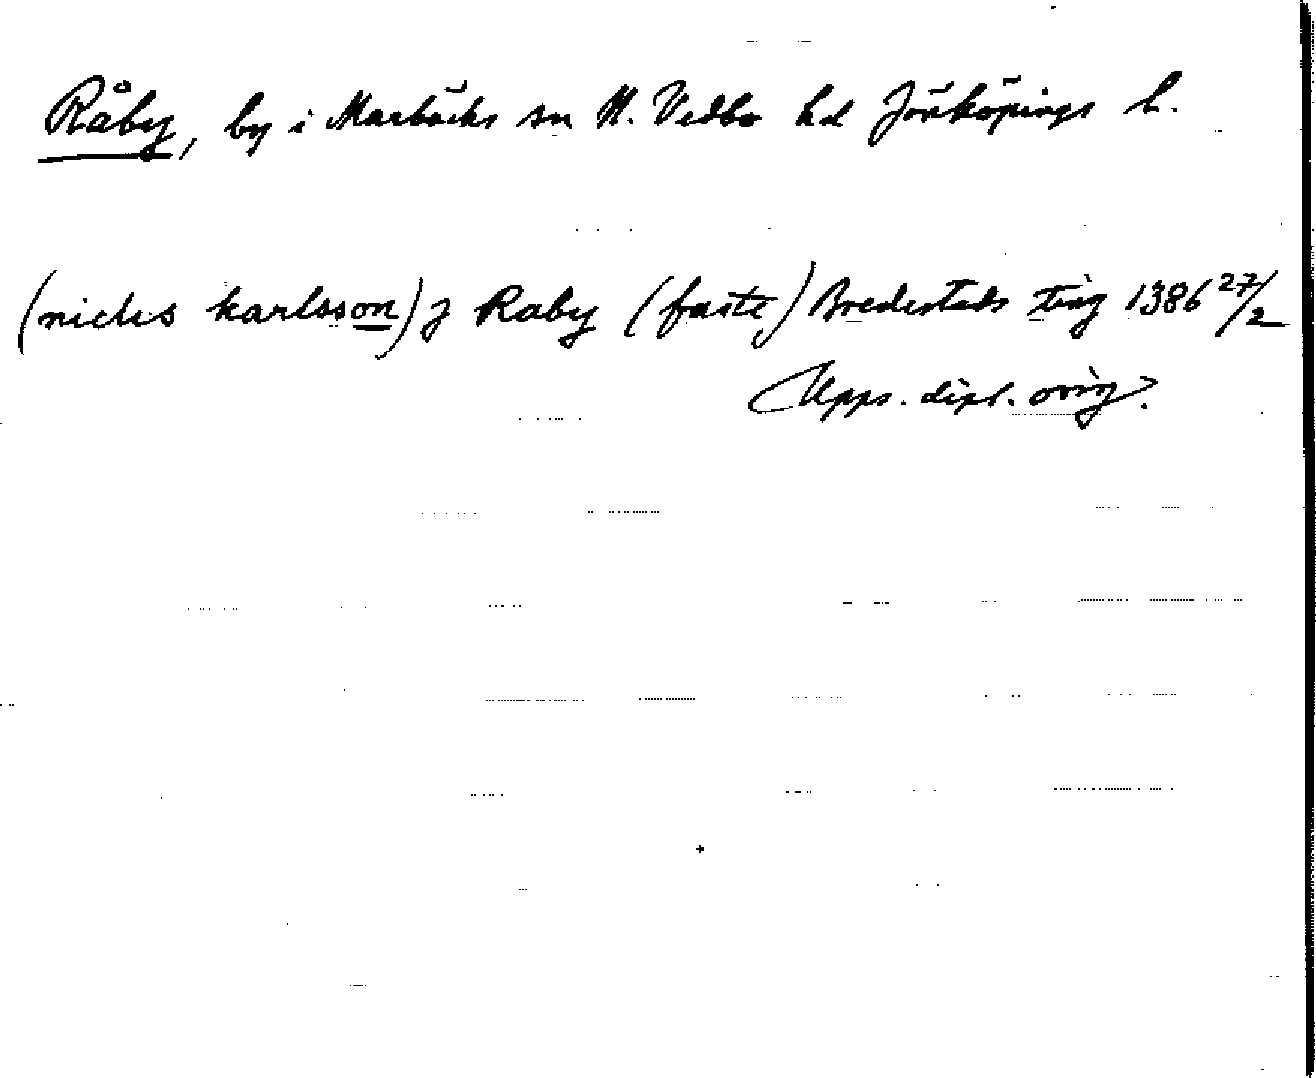 Råby, by i Marbäcks sn N. Vedbo hd Jönköpings l.
(niclis karlsson) j Raby (faste) Bredestads ting 1386 27/2
Upps. dipl. orig.